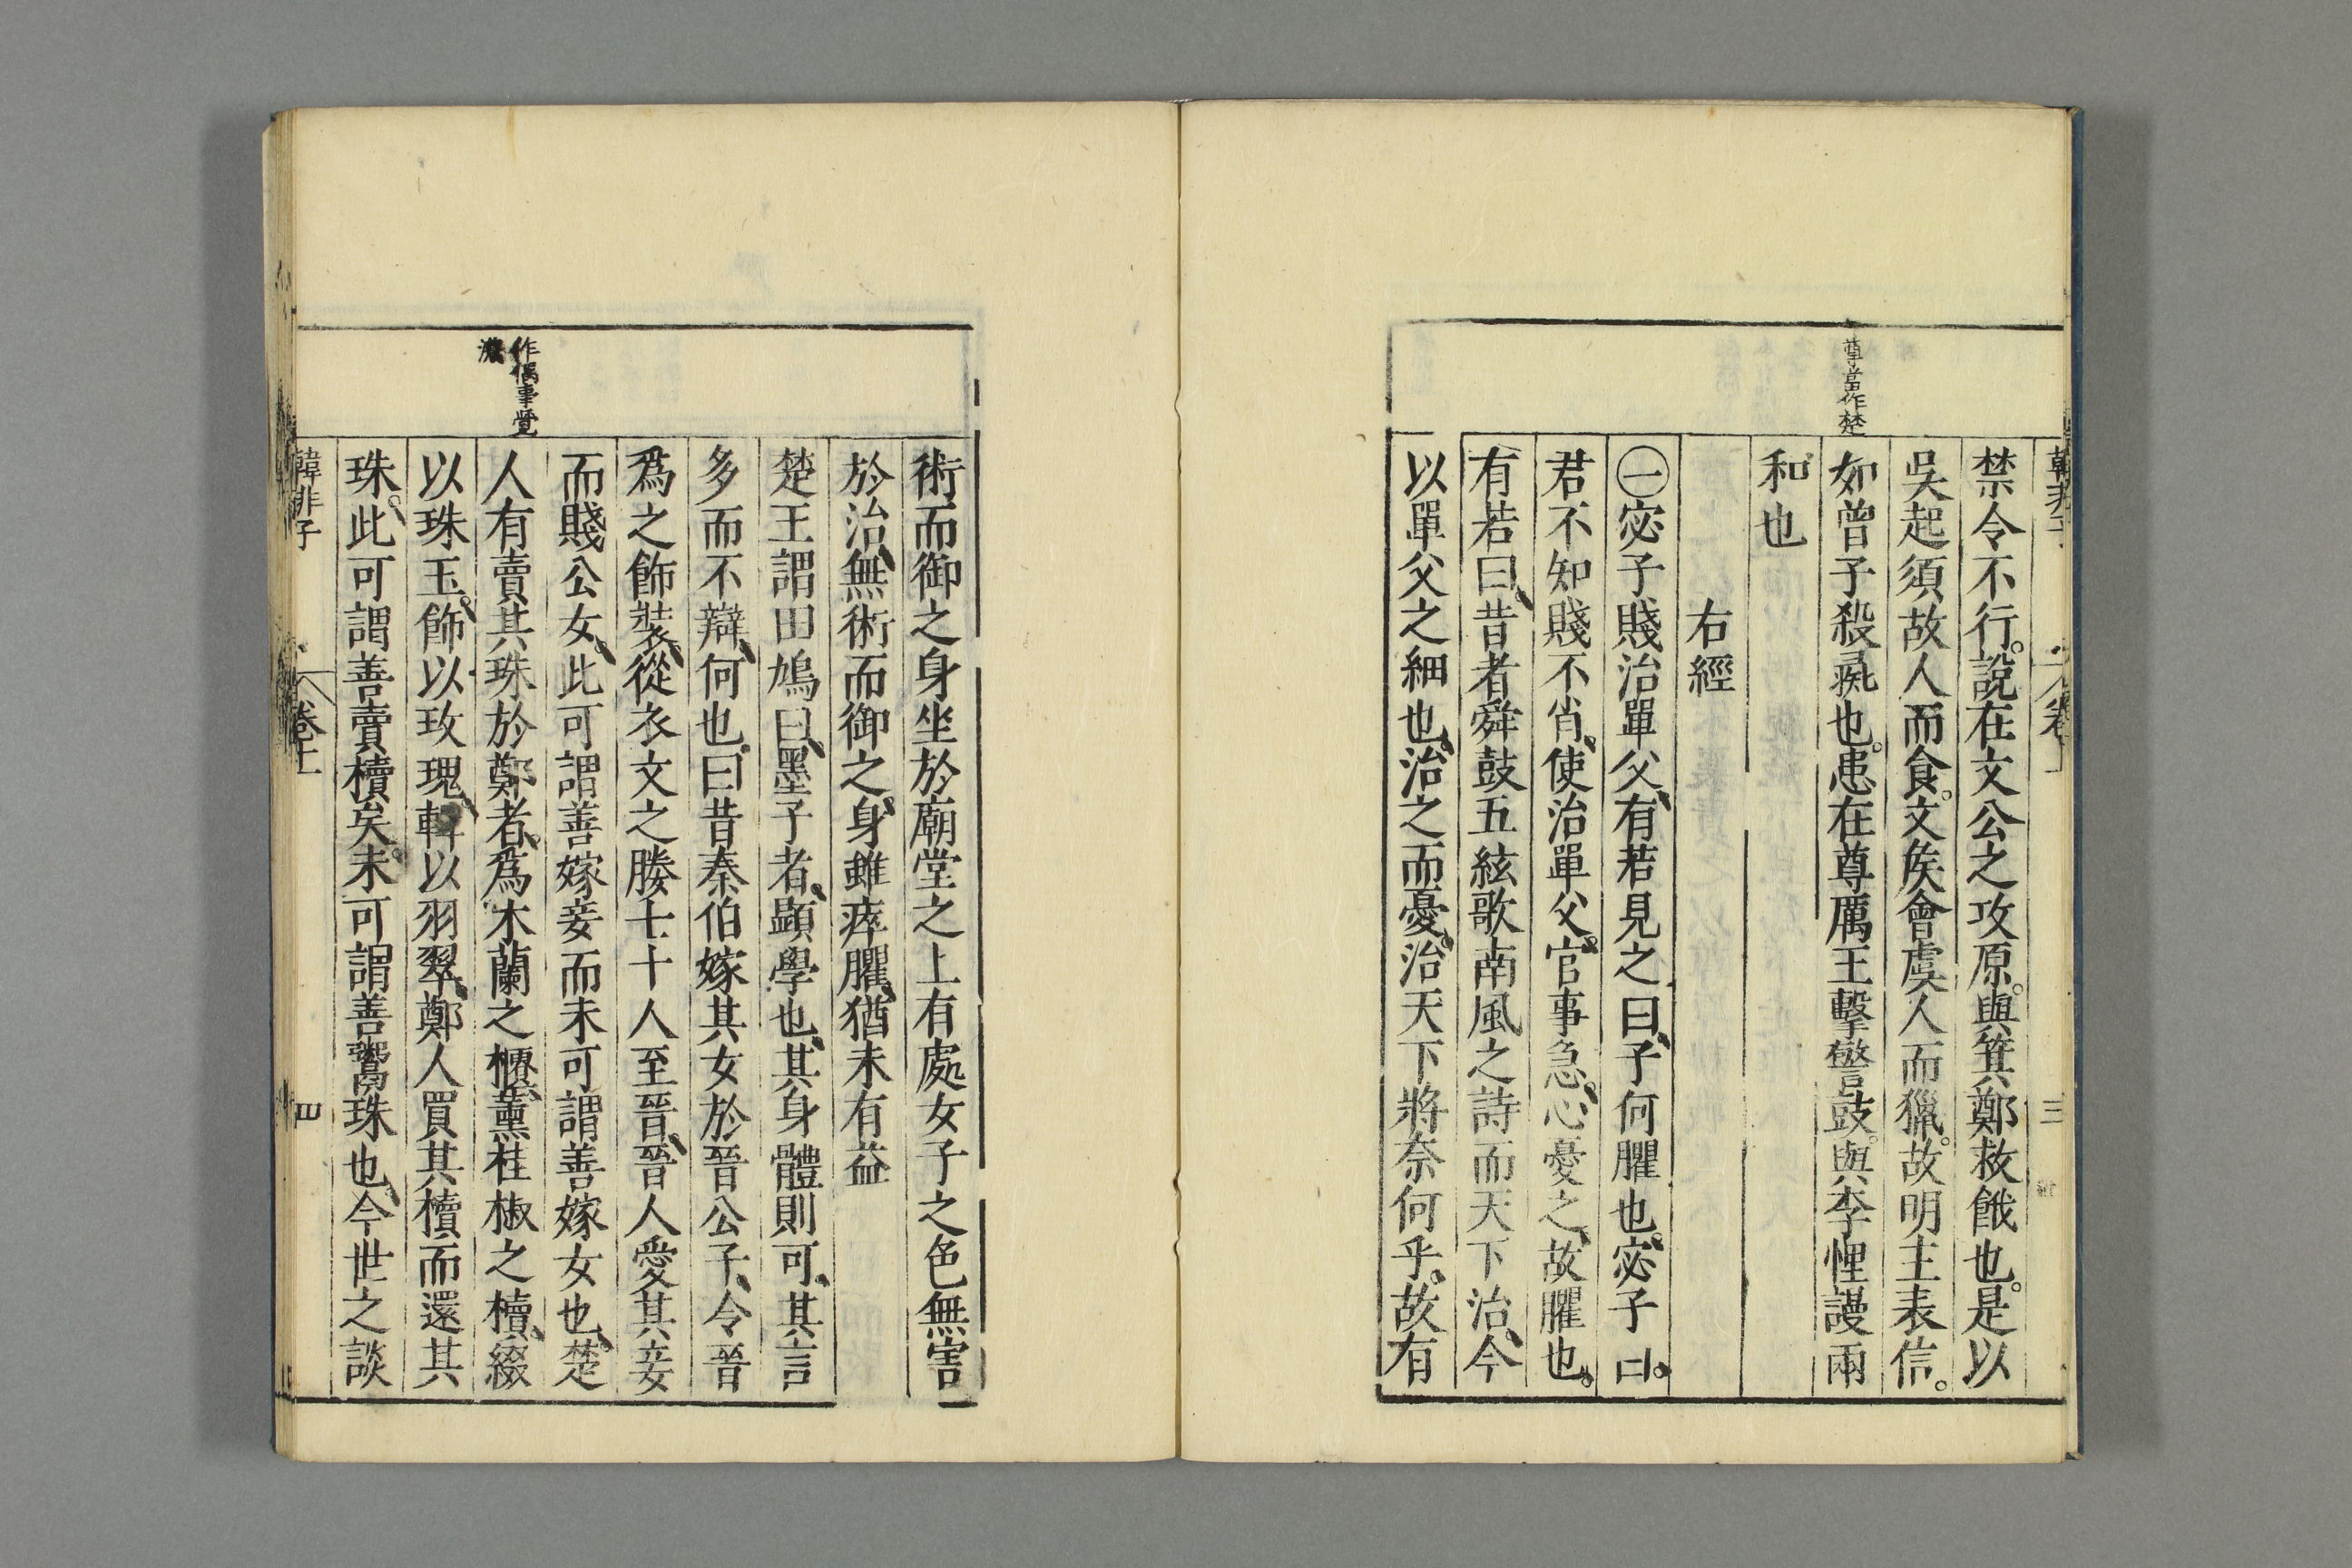 尊當作楚
禁令不行。說在文公之攻原。與箕鄭救餓也。是以
吳起須故人而食。文矦會虞人而獵。故明主表信。
如曾子殺彘也。患在尊厲王擊警鼓。與李悝謾兩
和也
右經
㊀宓子賤治單父、有若見之曰、子何臞也。宓子曰。
君不知賤不肖、使治單父。官事急、心憂之、故臞也。
有若曰、昔者舜鼓五絃歌南風之詩而天下治、今
以單父之細也、治之而憂、治天下將奈何乎、故有
術而御之身坐於廟堂之上有處女子之色無害
於治、無術而御之、身雖瘁臞、猶未有益
楚王謂田鳩曰、墨子者、顯學也、其身體則可、其言
多而不辯、何也。曰昔秦伯嫁其女於晉公子、令晉
爲之飾裝、從衣文之媵七十人至晉、晉人愛其妾
而賤公女、此可謂善嫁妾而未可謂善嫁女也、楚
作偶事覺
濃
人有賣其珠於鄭者、爲木蘭之櫃、薰桂椒之櫝、綴
以珠玉。飾以玫瑰、輯以羽翠、鄭人買其櫝而還其
珠。此可謂善賣櫝矣。未可謂善鬻珠也、今世之談
韓非子 卷十一 四